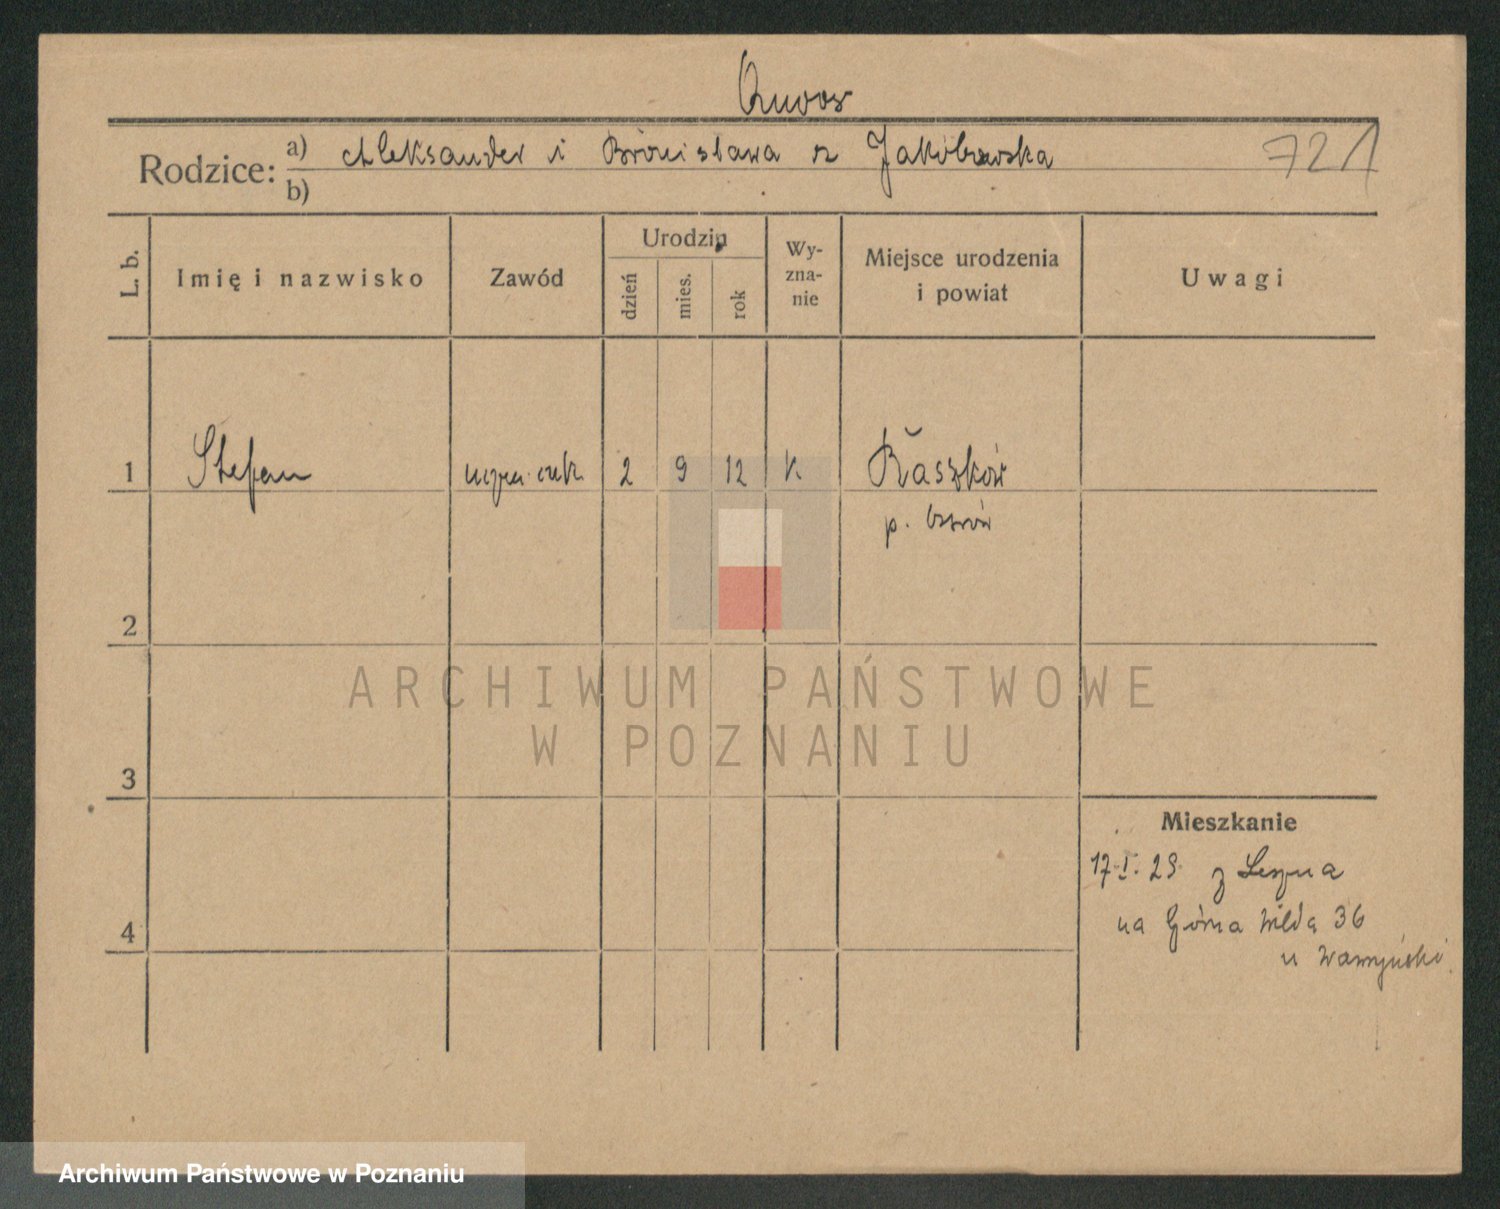 Rodzice: a) Aleksander i Bronisława z Jakóbowska 721
b)
L. b.
Imię i nazwisko
Zawód
Urodzin
dzień
mies.
rok
Wy-
zna-
nie
Miejsce urodzenia
i powiat
Uwagi
1 Stefan uczeń cuk. 2 9 12 k Raszków
p. Ostrów
2
ARCHIWUM PAŃSTWOWE
W POZNANIU
3
Mieszkanie
17.I.29. z Leszna
4
na Górna Wilda 36
u
Archiwum Państwowe w Poznaniu